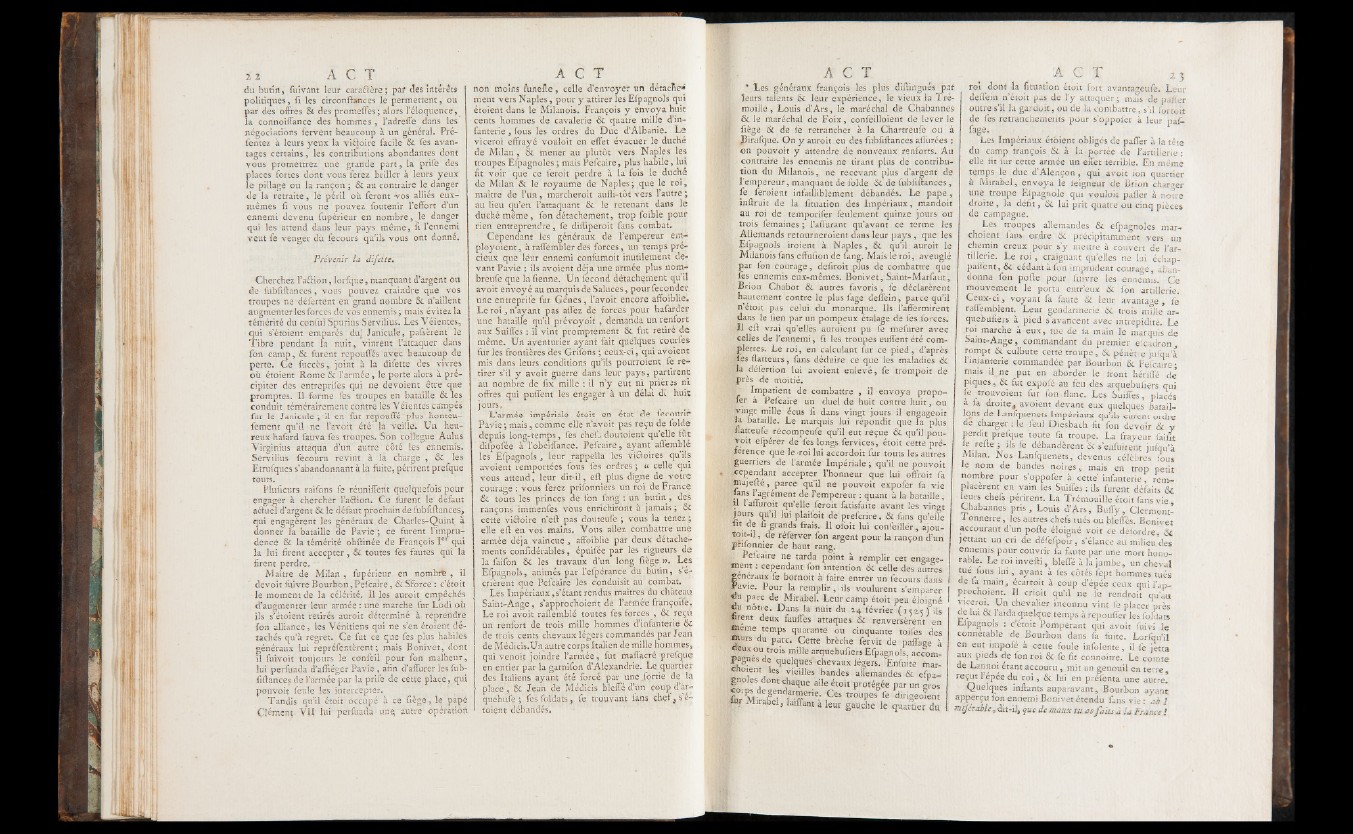 22 A C T
du butin, ſuivant leur caractère; par des intérêts
politiques, ſi les circonſtances le permettent, ou
par des offres & des promeſſes; alors l'éloquence,
la connoiſſance des hommes, l'adreſſe dans les
négociations ſervent beaucoup à un général. Pré-
ſentez à leurs yeux la victoire facile & ſes avan-
tages certains, les contributions abondantes dont
vous promettrez une grande part, la priſe des
places fortes dont vous ferez briller à leurs yeux
le pillage ou la rançon; & au contraire le danger
de la retraite, le péril où ſeront vos alliés eux-
mêmes ſi vous ne pouvez ſoutenir l'effort d'un
ennemi devenu ſupérieur en nombre, le danger
qui les attend dans leur pays même, ſi l'ennemi
veut ſe venger du ſecours qu'ils vous ont donné.
Prévenir la diſette.
Cherchez l'action, lorſque, manquant d'argent ou
de ſubſiſtances, vous pouvez craindre que vos
troupes ne déſertent en grand nombre & n'aillent
augmenter les forces de vos ennemis; mais évitez la
témérité du conſul Spurius Servilius. Les Véientes,
qui s'étoient emparés du Janicule, paſsèrent le
Tibre pendant la nuit, vinrent l'attaquer dans
ſon camp, & furent repouſſés avec beaucoup de
perte. Ce ſuccès, joint à la diſette des vivres
où étoient Rome & l'armée, le porte alors à pré-
cipiter des entrepriſes qui ne devoient être que
promptes. Il forme ſes troupes en bataille & les
conduit témérairement contre les Véientes campés
ſur le Janicule; il en fut repouſſé plus honteu-
ſement qu'il ne l'avoit été la veille. Un heu-
reux haſard ſauva ſes troupes. Son collègue Aulus
Virginius attaqua d'un autre côté les ennemis.
Servilius ſecouru revint à la charge, & les
Etruſques s'abandonnant à la fuite, périrent preſque
tous.
Pluſieurs raiſons ſe réuniſſent quelquefois pour
engager à chercher l'action. Ce furent le défaut
actuel d'argent & le défaut prochain de ſubſiſtances,
qui engagèrent les généraux de Charles-Quint à
donner la bataille de Pavie; ce furent l'impru-
dence & la témérité obſtinée de François Ier qui
la lui firent accepter, & toutes ſes fautes qui la
firent perdre.
Maître de Milan, ſupérieur en nombre, il
devoit ſuivre Bourbon, Peſcaire, & Sforce: c'étoit
le moment de la célérité. Il les auroit empêchés
d'augmenter leur armée: une marche ſur Lodi où
ils s'étoient retirés auroit déterminé à reprendre
ſon alliance, les Vénitiens qui ne s'en étoient dé-
tachés qu'à regret. Ce fut ce que ſes plus habiles
généraux lui repréſentèrent; mais Bonivet, dont
il ſuivoit toujours le conſeil pour ſon malheur,
lui perſuada d'aſſiéger Pavie, afin d'aſſurer les ſub-
ſiſtances de l'armée par la priſe de cette place, qui
pouvoit ſeule les intercepter.
Tandis qu'il étoit occupé à ce ſiège, le pape
Clément VII lui perſuada une autre opération
A C T
non moins funeſte, celle d'envoyer un détache-
ment vers Naples, pour y attirer les Eſpagnols qui
étoient dans le Milanois. François y envoya huit
cents hommes de cavalerie & quatre mille d'in-
fanterie, ſous les ordres du Duc d'Albanie. Le
viceroi effrayé vouloit en effet évacuer le duché
de Milan, & mener au plutôt vers Naples les
troupes Eſpagnoles; mais Peſcaire, plus habile, lui
fit voir que ce ſeroit perdre à la fois le duché
de Milan & le royaume de Naples; que le roi,
maître de l'un, marcheroit auſſi-tôt vers l'autre;
au lieu qu'en l'attaquant & le retenant dans le
duché même, ſon détachement, trop foible pour
rien entreprendre, ſe diſſiperoit ſans combat.
Cependant les généraux de l'empereur em-
ployoient, à raſſembler des forces, un temps pré-
cieux que leur ennemi conſumoit inutilement de-
vant Pavie: ils avoient déja une armée plus nom-
breuſe que la ſienne. Un ſecond détachement qu'il
avoit envoyé au marquis de Saluces, pour ſeconder
une entrepriſe ſur Gênes, l'avoit encore affoiblie.
Le roi, n'ayant pas aſſez de forces pour haſarder
une bataille qu'il prévoyoit, demanda un renfort
aux Suiſſes: il vint promptement & fut retiré de
même. Un aventurier ayant fait quelques courſes
ſur les frontières des Griſons; ceux-ci, qui avoient
mis dans leurs conditions qu'ils pourroient ſe re-
tirer s'il y avoit guerre dans leur pays, partirent
au nombre de ſix mille: il n'y eut ni prieres ni
offres qui puſſent les engager à un délai de huit
jours.
L'armée impériale étoit en état de ſecourir
Pavie; mais, comme elle n'avoit pas reçu de ſolde
depuis long-temps, ſes chefs doutoient qu'elle fût
diſpoſée à l'obéiſſance. Peſcaire, ayant aſſemblé
les Eſpagnols, leur rappella les victoires qu'ils
avoient remportées ſous ſes ordres; « celle qui
vous attend, leur dit-il, eſt plus digne de votre
courage: vous ferez priſonniers un roi de France
& tous les princes de ſon ſang: un butin, des
rançons immenſes vous enrichiront à jamais; &
cette victoire n'eſt pas douteuſe; vous la tenez;
elle eſt en vos mains. Vous allez combattre une
armée déja vaincue, affoiblie par deux détache-
ments conſidérables, épuiſée par les rigueurs de
la ſaiſon & les travaux d'un long ſiège ». Les
Eſpagnols, animés par l'eſpérance du butin, s'é-
crièrent que Peſcaire les conduisit au combat.
Les Impériaux, s'étant rendus maîtres du château
Saint-Ange, s'approchoient de l'armée françoiſe.
Le roi avoit raſſemblé toutes ſes forces, & reçu
un renfort de trois mille hommes d'infanterie &
de trois cents chevaux légers commandés par Jean
de Médicis. Un autre corps Italien de mille hommes,
qui venoit joindre l'armée, fut maſſacré preſque
en entier par la garniſon d'Alexandrie. Le quartier
des Italiens ayant été forcé par une ſortie de la
place, & Jean de Médicis bleſſé d'un coup d'ar-
quebuſe; ſes ſoldats, ſe trouvant ſans chef, s'é-
toient débandés.
A C T
Les généraux françois les plus diſtingués par
leurs talents & leur expérience, le vieux la Tré-
moille, Louis d'Ars, le maréchal de Chabannes
& le maréchal de Foix, conſeilloient de lever le
ſiège & de ſe retrancher à la Chartreuſe ou à
Binaſque. On y auroit eu des ſubſiſtances aſſurées:
on pouvoit y attendre de nouveaux renforts. Au
contraire les ennemis ne tirant plus de contribu-
tion du Milanois, ne recevant plus d'argent de
l'empereur, manquant de ſolde & de ſubſiſtances,
ſe ſeroient infailliblement débandés. Le pape,
inſtruit de la ſituation des Impériaux, mandoit
au roi de temporiſer ſeulement quinze jours ou
trois ſemaines; l'aſſurant qu'avant ce terme les
Allemands retourneroient dans leur pays, que les
Eſpagnols iroient à Naples, & qu'il auroit le
Milanois ſans effuſion de ſang. Mais le roi, aveuglé
par ſon courage, deſiroit plus de combattre que
ſes ennemis eux-mêmes. Bonivet, Saint-Marſaut,
Brion Chabot & autres favoris, ſe déclarèrent
hautement contre le plus ſage deſſein, parce qu'il
n'étoit pas celui du monarque. Ils l'affermirent
dans le ſien par un pompeux étalage de ſes forces.
Il eſt vrai qu'elles auroient pu ſe meſurer avec
celles de l'ennemi, ſi les troupes euſſent été com-
plettes. Le roi, en calculant ſur ce pied, d'après
ſes flatteurs, ſans déduire ce que les maladies &
la déſertion lui avoient enlevé, ſe trompoit de
près de moitié.
Impatient de combattre, il envoya propo-
ſer à Peſcaire un duel de huit contre huit, ou
vingt mille écus ſi dans vingt jours il engageoit
la bataille. Le marquis lui répondit que la plus
flatteuſe récompenſe qu'il eut reçue & qu'il pou-
voit eſpérer de ſes longs ſervices, étoit cette pré-
férence que le roi lui accordoit ſur tous les autres
guerriers de l'armée Impériale; qu'il ne pouvoit
cependant accepter l'honneur que lui offroit ſa
majeſté, parce qu'il ne pouvoit expoſer ſa vie
ſans l'agrément de l'empereur: quant à la bataille,
il l'aſſuroit qu'elle ſeroit ſatisfaite avant les vingt
jours qu'il lui plaiſoit de preſcrire, & ſans qu'elle
fit de ſi grands frais. Il oſoit lui conſeiller, ajou-
toit-il, de réſerver ſon argent pour la rançon d'un
priſonnier de haut rang.
Peſcaire ne tarda point à remplir cet engage-
ment: cependant ſon intention & celle des autres
généraux ſe bornoit à faire entrer un ſecours dans
Pavie. Pour la remplir, ils voulurent s'emparer
du parc de Mirabel. Leur camp étoit peu éloigné
du nôtre. Dans la nuit du 24 février (1525) ils
firent deux fauſſes attaques & renversèrent en
même temps quarante ou cinquante toiſes des
murs du parc. Cette brèche ſervit de paſſage à
deux ou trois mille arquebuſiers Eſpagnols, accom-
pagnés de quelques chevaux légers. Enſuite mar-
choient les vieilles bandes allemandes & eſpa-
gnoles dont chaque aîle étoit protégée par un gros
corps de gendarmerie. Ces troupes ſe dirigeoient
ſur Mirabel, laiſſant à leur gauche le quartier du
A C T 23
roi dont la ſituation étoit fort avantageuſe. Leur
deſſein n'étoit pas de l'y attaquer; mais de paſſer
outre s'il la gardoit, ou de la combattre, s'il ſortoit
de ſes retranchements pour s'oppoſer à leur paſ-
ſage.
Les Impériaux étoient obligés de paſſer à la tête
du camp françois & à la portée de l'artillerie:
elle fit ſur cette armée un effet terrible. En même
temps le duc d'Alençon, qui avoit ſon quartier
à Mirabel, envoya le ſeigneur de Brion charger
une troupe Eſpagnole qui vouloit paſſer à notre
droite, la défit, & lui prit quatre ou cinq pièces
de campagne.
Les troupes allemandes & eſpagnoles mar-
choient ſans ordre & précipitamment vers un
chemin creux pour s'y mettre à couvert de l'ar-
tillerie. Le roi, craignant qu'elles ne lui échap-
paſſent, & cédant à ſon imprudent courage, aban-
donna ſon poſte pour ſuivre ſes ennemis. Ce
mouvement le porta entr'eux & ſon artillerie.
Ceux-ci, voyant ſa faute & leur avantage, ſe
raſſemblent. Leur gendarmerie & trois mille ar-
quebuſiers à pied s'avancent avec intrépidité. Le
roi marche à eux, tue de ſa main le marquis de
Saint-Ange, commandant du premier eſcadron,
rompt & culbute cette troupe, & pénètre juſqu'à
l'infanterie commandée par Bourbon & Peſcaire;
mais il ne put en aborder le front hériſſé de
piques, & fut expoſé au feu des arquebuſiers qui
ſe trouvoient ſur ſon flanc. Les Suiſſes, placés
à ſa droite, avoient devant eux quelques batail-
lons de Lanſquenets Impériaux qu'ils eurent ordre
de charger: le ſeul Diesbach fit ſon devoir & y
perdit preſque toute ſa troupe. La frayeur ſaiſit
le reſte; ils ſe débandèrent & s'enfuirent juſqu'à
Milan. Nos Lanſquenets, devenus célèbres ſous
le nom de bandes noires, mais en trop petit
nombre pour s'oppoſer à cette infanterie, rem-
placèrent en vain les Suiſſes: ils furent défaits &
leurs chefs périrent. La Trémouille étoit ſans vie,
Chabannes pris, Louis d'Ars, Buſſy, Clermont-
Tonnerre, les autres chefs tués ou bleſſés. Bonivet
accourant d'un poſte éloigné voit ce déſordre, &
jettant un cri de déſeſpoir, s'élance au milieu des
ennemis pour couvrir ſa faute par une mort hono-
rable. Le roi inveſti, bleſſé à la jambe, un cheval
tué ſous lui, ayant à ſes côtés ſept hommes tués
de ſa main, écartoit à coup d'épée ceux qui l'ap-
prochoient. Il crioit qu'il ne ſe rendroit qu'au
viceroi. Un chevalier inconnu vint ſe placer près
de lui & l'aida quelque temps à repouſſer les ſoldats
Eſpagnols: c'étoit Pomperant qui avoit ſuivi le
connétable de Bourbon dans ſa fuite. Lorſqu'il
en eut impoſé à cette foule inſolente, il ſe jetta
aux pieds de ſon roi & ſe fit connoître. Le comte
de Lannoi étant accouru, mit un genouil en terre,
reçut l'épée du roi, & lui en préſenta une autre.
Quelques inſtants auparavant, Bourbon ayant
apperçu ſon ennemi Bonivet étendu ſans vie: ah!
miſérable, dit-il, que de maux tu as faits à la France!